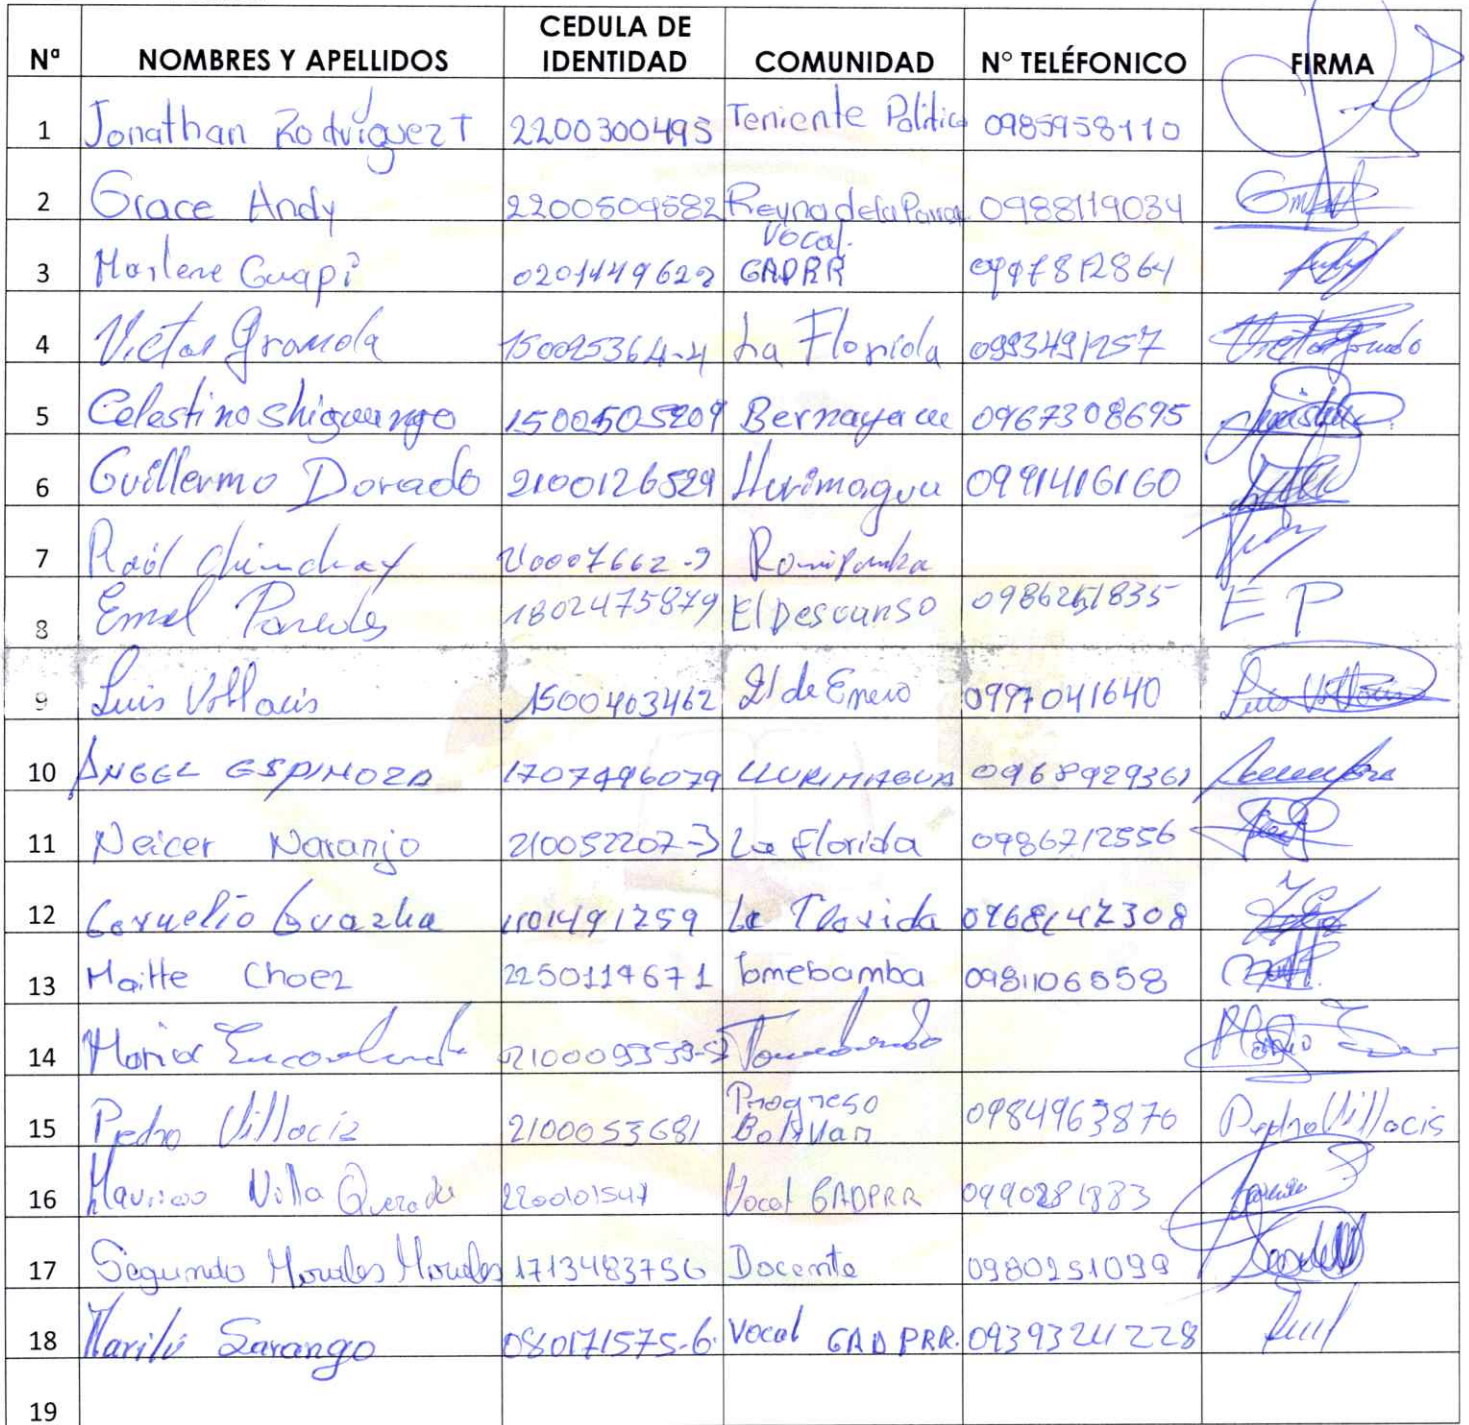 Nª NOMBRES Y APELLIDOS CEDULA DE IDENTIDAD COMUNIDAD N° TELÉFONICO FIRMA
1 Jonathan Rodríguez T 2200300495 Teniente Politico 0985958110
2 Grace Andy 2200509582 Reyna de la 0988119034
3 Marlene Guapi Vocal. GADPRR
4 Victor Granda 150025364-4 La Florida 0993491257
5 Celestino Shiguango 1500505209 Bernayacu 0967308695
6 Guillermo Dorado 2100126529 Llurimagua 0991416160
7 Raúl Chinchay 210007662-9 Rumipamba
8 Emel Paredes 1802475879 El Descanso E P
9 Luis Villacis 1500403462 21 de Enero 0997041640 Luis Villacis
10 ANGEL ESPINOZA 1707496079 LLURIMAGUA 0968929361
11 Neicer Naranjo 210052207-3 La Florida 0986712556
12 Cornelio Guazha 1101491259 La Florida 0968147308
13 Maitte Choez 2250119671 Tomebamba 0981106558
14 Maria
15 Pedro Villacis 2100053681 Progreso Bolivar 0984963870 Pedro Villacis
16 Mauricio Villa Quezada 2200101547 Vocal GADPRR 0990281983
17 Segundo Morales Morales 1713483756 Docente 0980251099
18 Marilú Sarango 080171575-6 Vocal GAD PRR. 0939324228
19